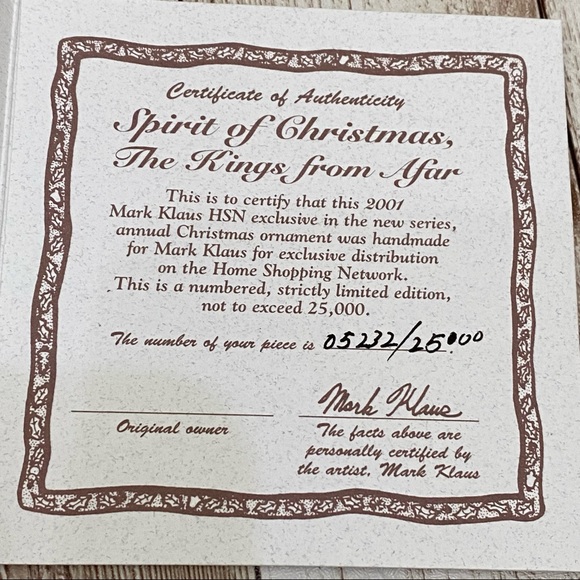 Certificate of Authenticity
Spirit of Christmas,
The Kings from Afar
This is to certify that this 2001
Mark Klaus HSN exclusive in the new series,
annual Christmas ornament was handmade
for Mark Klaus for exclusive distribution
on the Home Shopping Network.
This is a numbered, strictly limited edition,
not to exceed 25,000.
The number of your piece is 05232/25000
Mark Klaus
Original owner
The facts above are
personally certified by
the artist, Mark Klaus